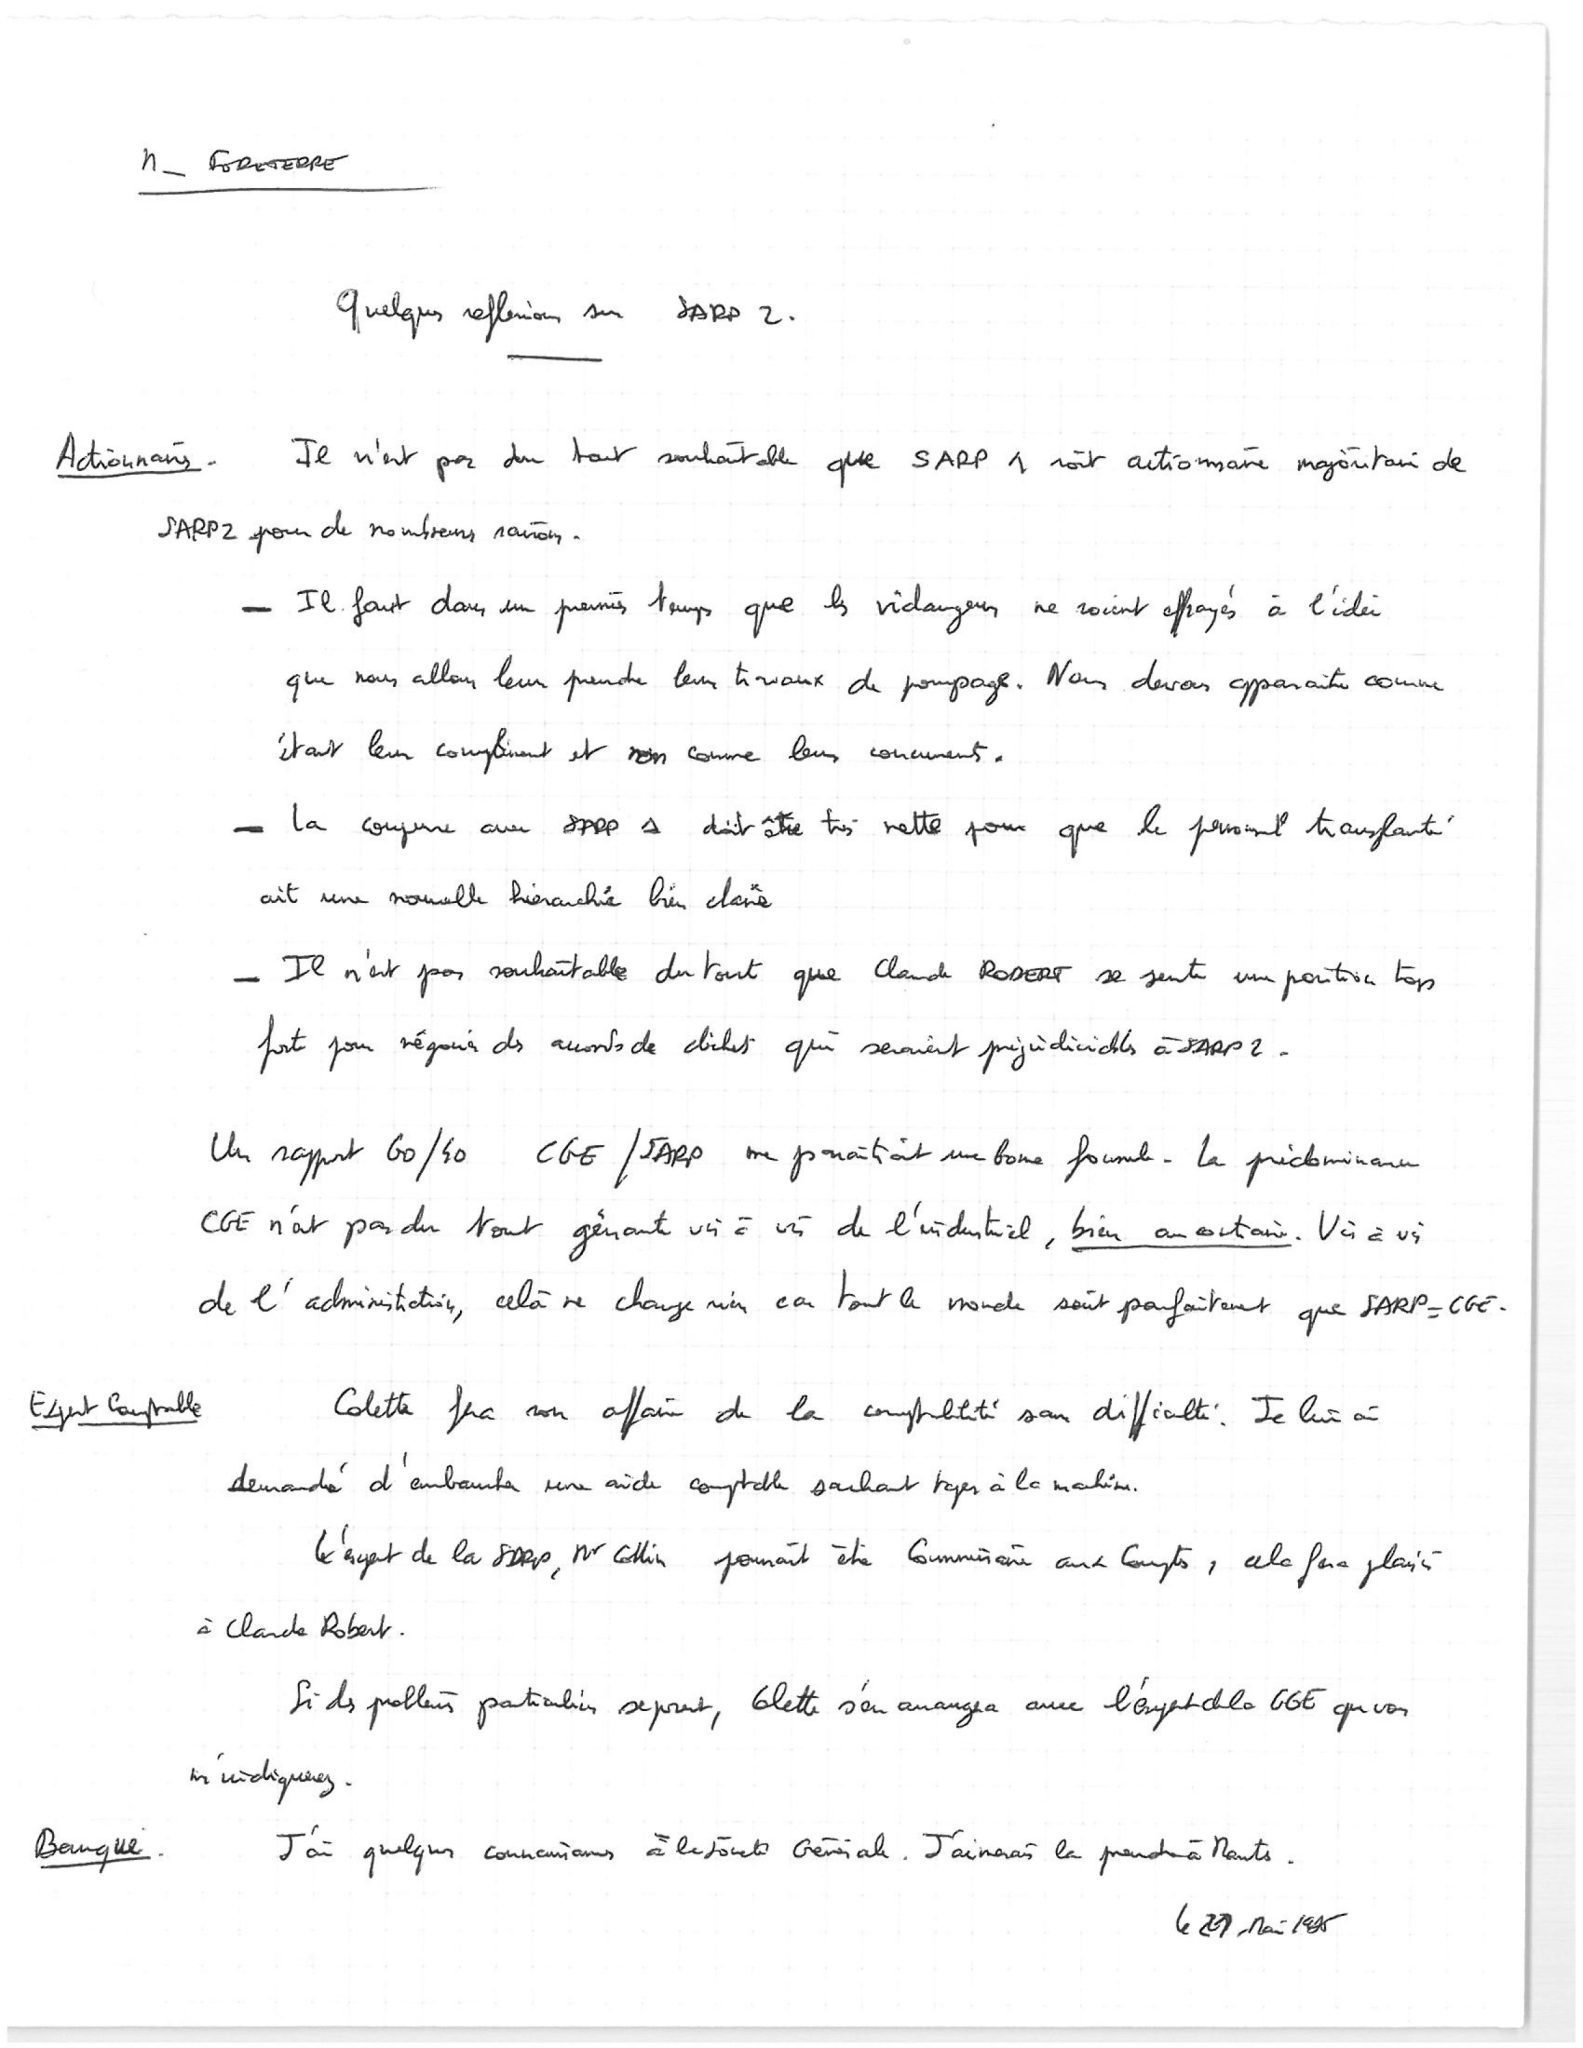 M_ FORETERRE
Quelques reflexions sur SARP 2.
Actionnaires. Il n'est pas du tout souhaitable que SARP 1 soit actionnaire majoritaire de
SARP2 pour de nombreuses raisons.
— Il faut dans un premier temps que les vidangeurs ne soient effrayés à l'idée
que nous allons leur prendre leurs travaux de pompage. Nous devons apparaitre comme
étant leur complément et non comme leurs concurrents.
— La coupure avec SARP 1 doit être très nette pour que le personnel transplanté
ait une nouvelle hiérarchie bien claire
— Il n'est pas souhaitable du tout que Claude ROBERT se sente une position trop
forte pour négocier des accords de déchets qui seraient préjudiciables à SARP 2.
Un rapport 60/40 CGE/SARP me paraîtrait une bonne formule. La prédominance
CGE n'est pas du tout gênante vis à vis de l'industriel, bien au contraire. Vis à vis
de l'administration, celà ne change rien car tout le monde sait parfaitement que SARP = CGE.
Expert Comptable Colette fera son affaire de la comptabilité sans difficulté. Je lui ai
demandé d'embaucher une aide comptable sachant taper à la machine.
L'expert de la SARP, Mr Collin pourrait être Commissaire aux Comptes, cela fera plaisir
à Claude Robert.
Si des problèmes particuliers se posent, Colette s'en arrangera avec l'expert de la CGE que vous
m'indiquerez.
Banque. J'ai quelques connaissances à la Société Générale. J'aimerais la prendre à Mantes.
le Mai 1975